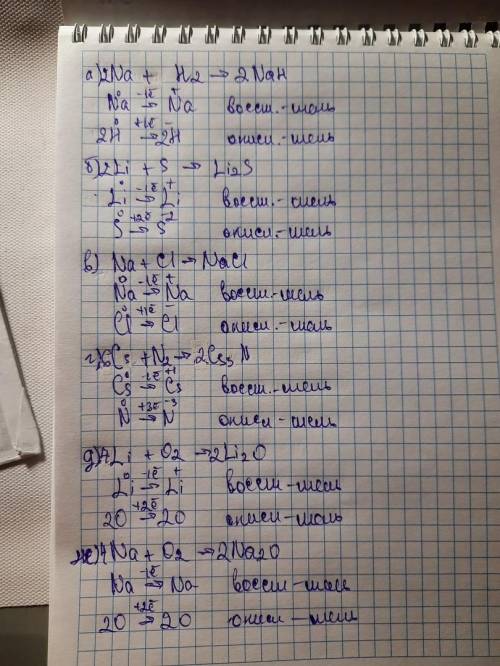 а) 2Na + H2 → 2NaH
Na⁰ -1ē → Na⁺ восст.-тель
2H⁰ +1ē → 2H⁻ окисл.-тель
б) 2Li + S → Li2S
Li⁰ -1ē → Li⁺ восст.-тель
S⁰ +2ē → S⁻² окисл.-тель
в) Na + Cl → NaCl
Na⁰ -1ē → Na⁺ восст.-тель
Cl⁰ +1ē → Cl⁻ окисл.-тель
г) 6Cs + N2 → 2Cs3N
Cs⁰ -1ē → Cs⁺¹ восст.-тель
N⁰ +3ē → N⁻³ окисл-тель
д) 4Li + O2 → 2Li2O
Li⁰ -1ē → Li⁺ восст-тель
2O +2ē → 2O окисл-тель
4Na + O2 → 2Na2O
Na -1ē → Na восст-тель
2O +2ē → 2O окисл-тель